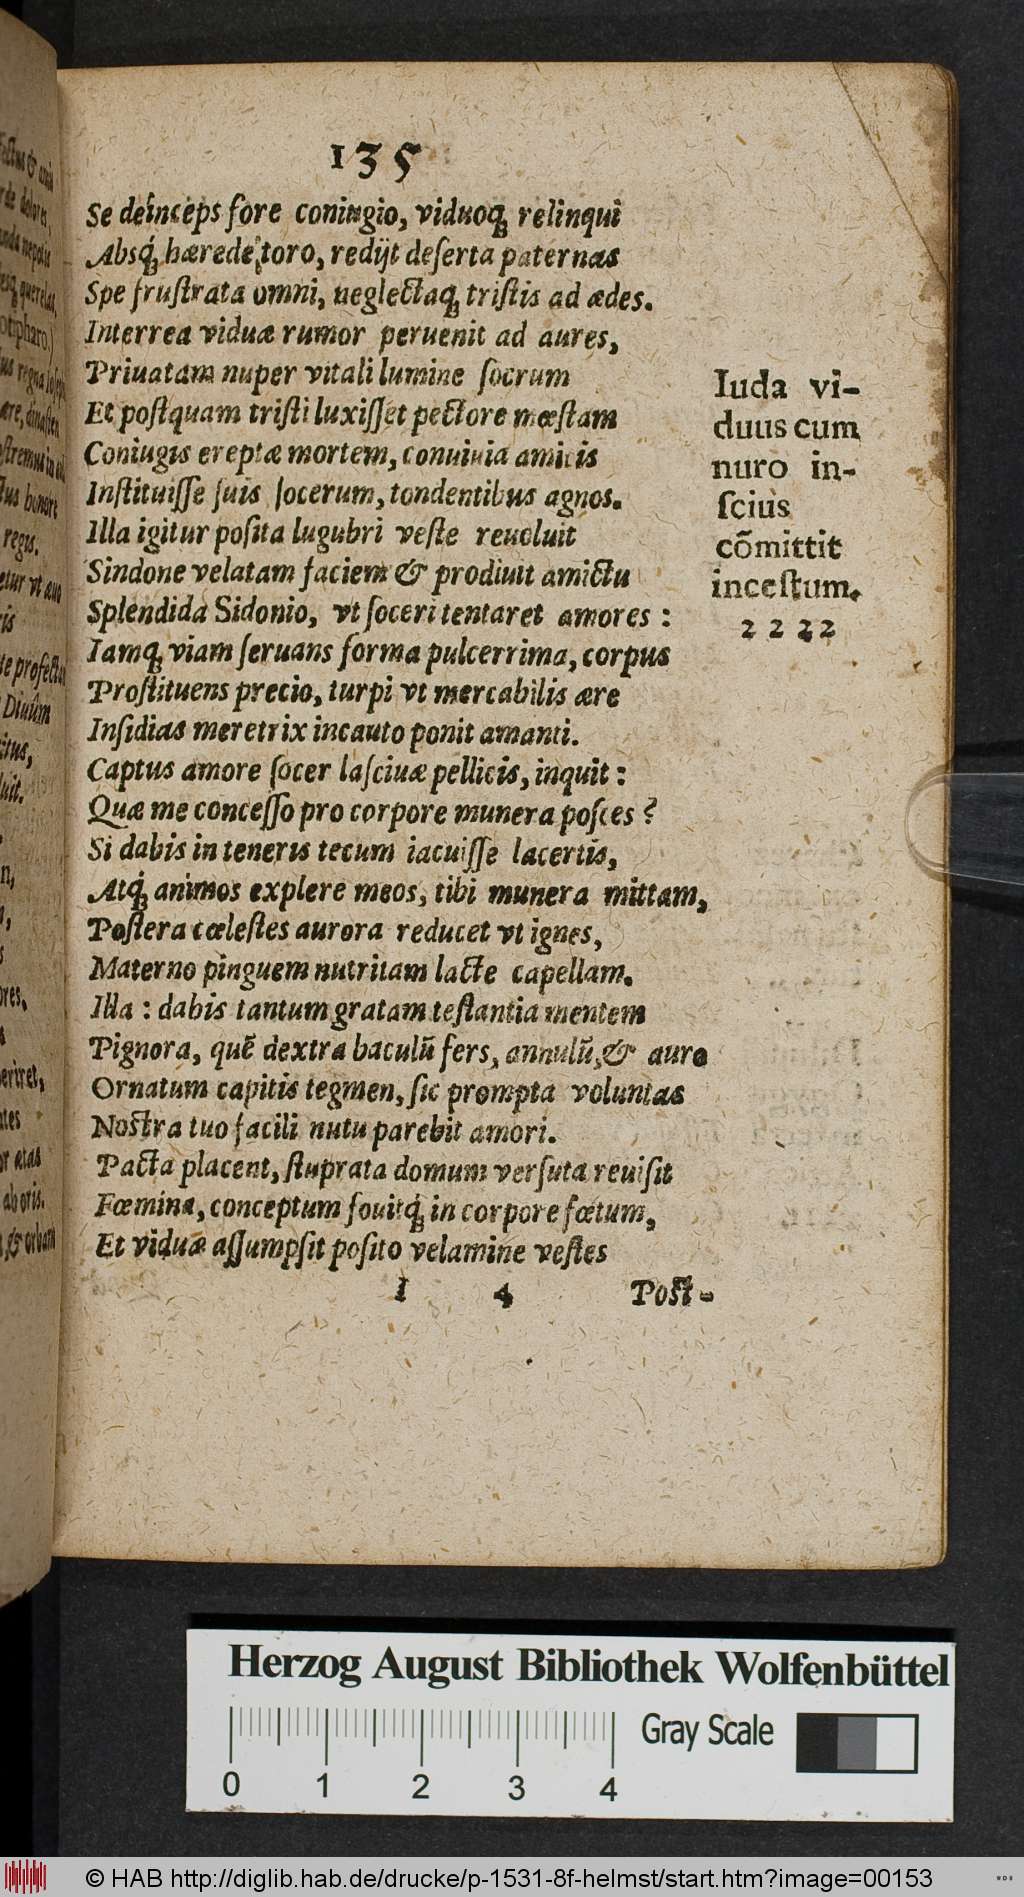 135
Se deinceps fore coniugio, viduoq́; relinqui
Absq́; hærede toro, redijt deserta paternas
Spe frustrata omni, neglectaq́; tristis ad ædes.
Interrea viduæ rumor peruenit ad aures,
Priuatam nuper vitali lumine socrum
Et postquam tristi luxisset pectore mœstam
Coniugis ereptæ mortem, conuiuia amicis
Instituisse suis socerum, tondentibus agnos.
Illa igitur posita lugubri veste reuoluit
Sindone velatam faciem & prodiuit amictu
Splendida Sidonio, vt soceri tentaret amores:
Iamq́; viam seruans forma pulcerrima, corpus
Prostituens precio, turpi vt mercabilis ære
Insidias meretrix incauto ponit amanti.
Captus amore socer lasciuæ pellicis, inquit:
Quæ me concesso pro corpore munera posces?
Si dabis in teneris tecum iacuisse lacertis,
Atq́; animos explere meos, tibi munera mittam,
Postera cœlestes aurora reducet vt ignes,
Materno pinguem nutritam lacte capellam.
Illa: dabis tantum gratam testantia mentem
Pignora, quẽ dextra baculũ fers, annulũ, & auro
Ornatum capitis tegmen, sic prompta voluntas
Nostra tuo facili nutu parebit amori.
Pacta placent, stuprata domum versuta reuisit
Fœmina, conceptum fouitq́; in corpore fœtum,
Et viduæ assumpsit posito velamine vestes
I 4 Post-
Iuda vi-
duus cum
nuro in-
scius
cõmittit
incestum.
2222
Herzog August Bibliothek Wolfenbüttel
Gray Scale
0 1 2 3 4
© HAB http://diglib.hab.de/drucke/p-1531-8f-helmst/start.htm?image=00153